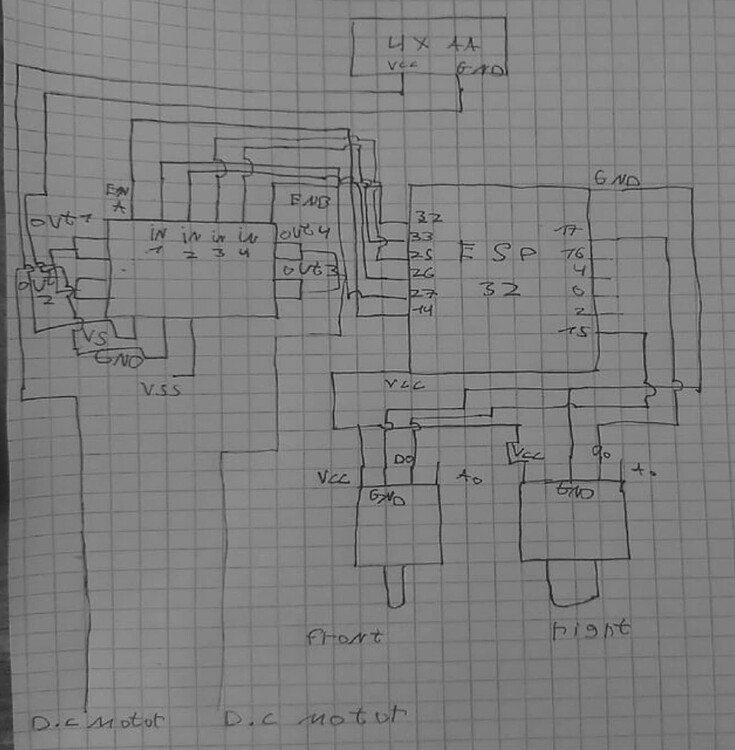 4 X AA
VCC GND
GND
EN
A
ENB
OUT 1
IN IN IN IN
1 2 3 4
OUT 4
OUT 3
OUT
2
32
33
25
26
27
14
ESP
32
17
16
4
0
2
15
VS
GND
VSS
VCC
VCC
D0
A0
GND
VCC
D0
A0
GND
Front
Right
D.C Motor
D.C Motor